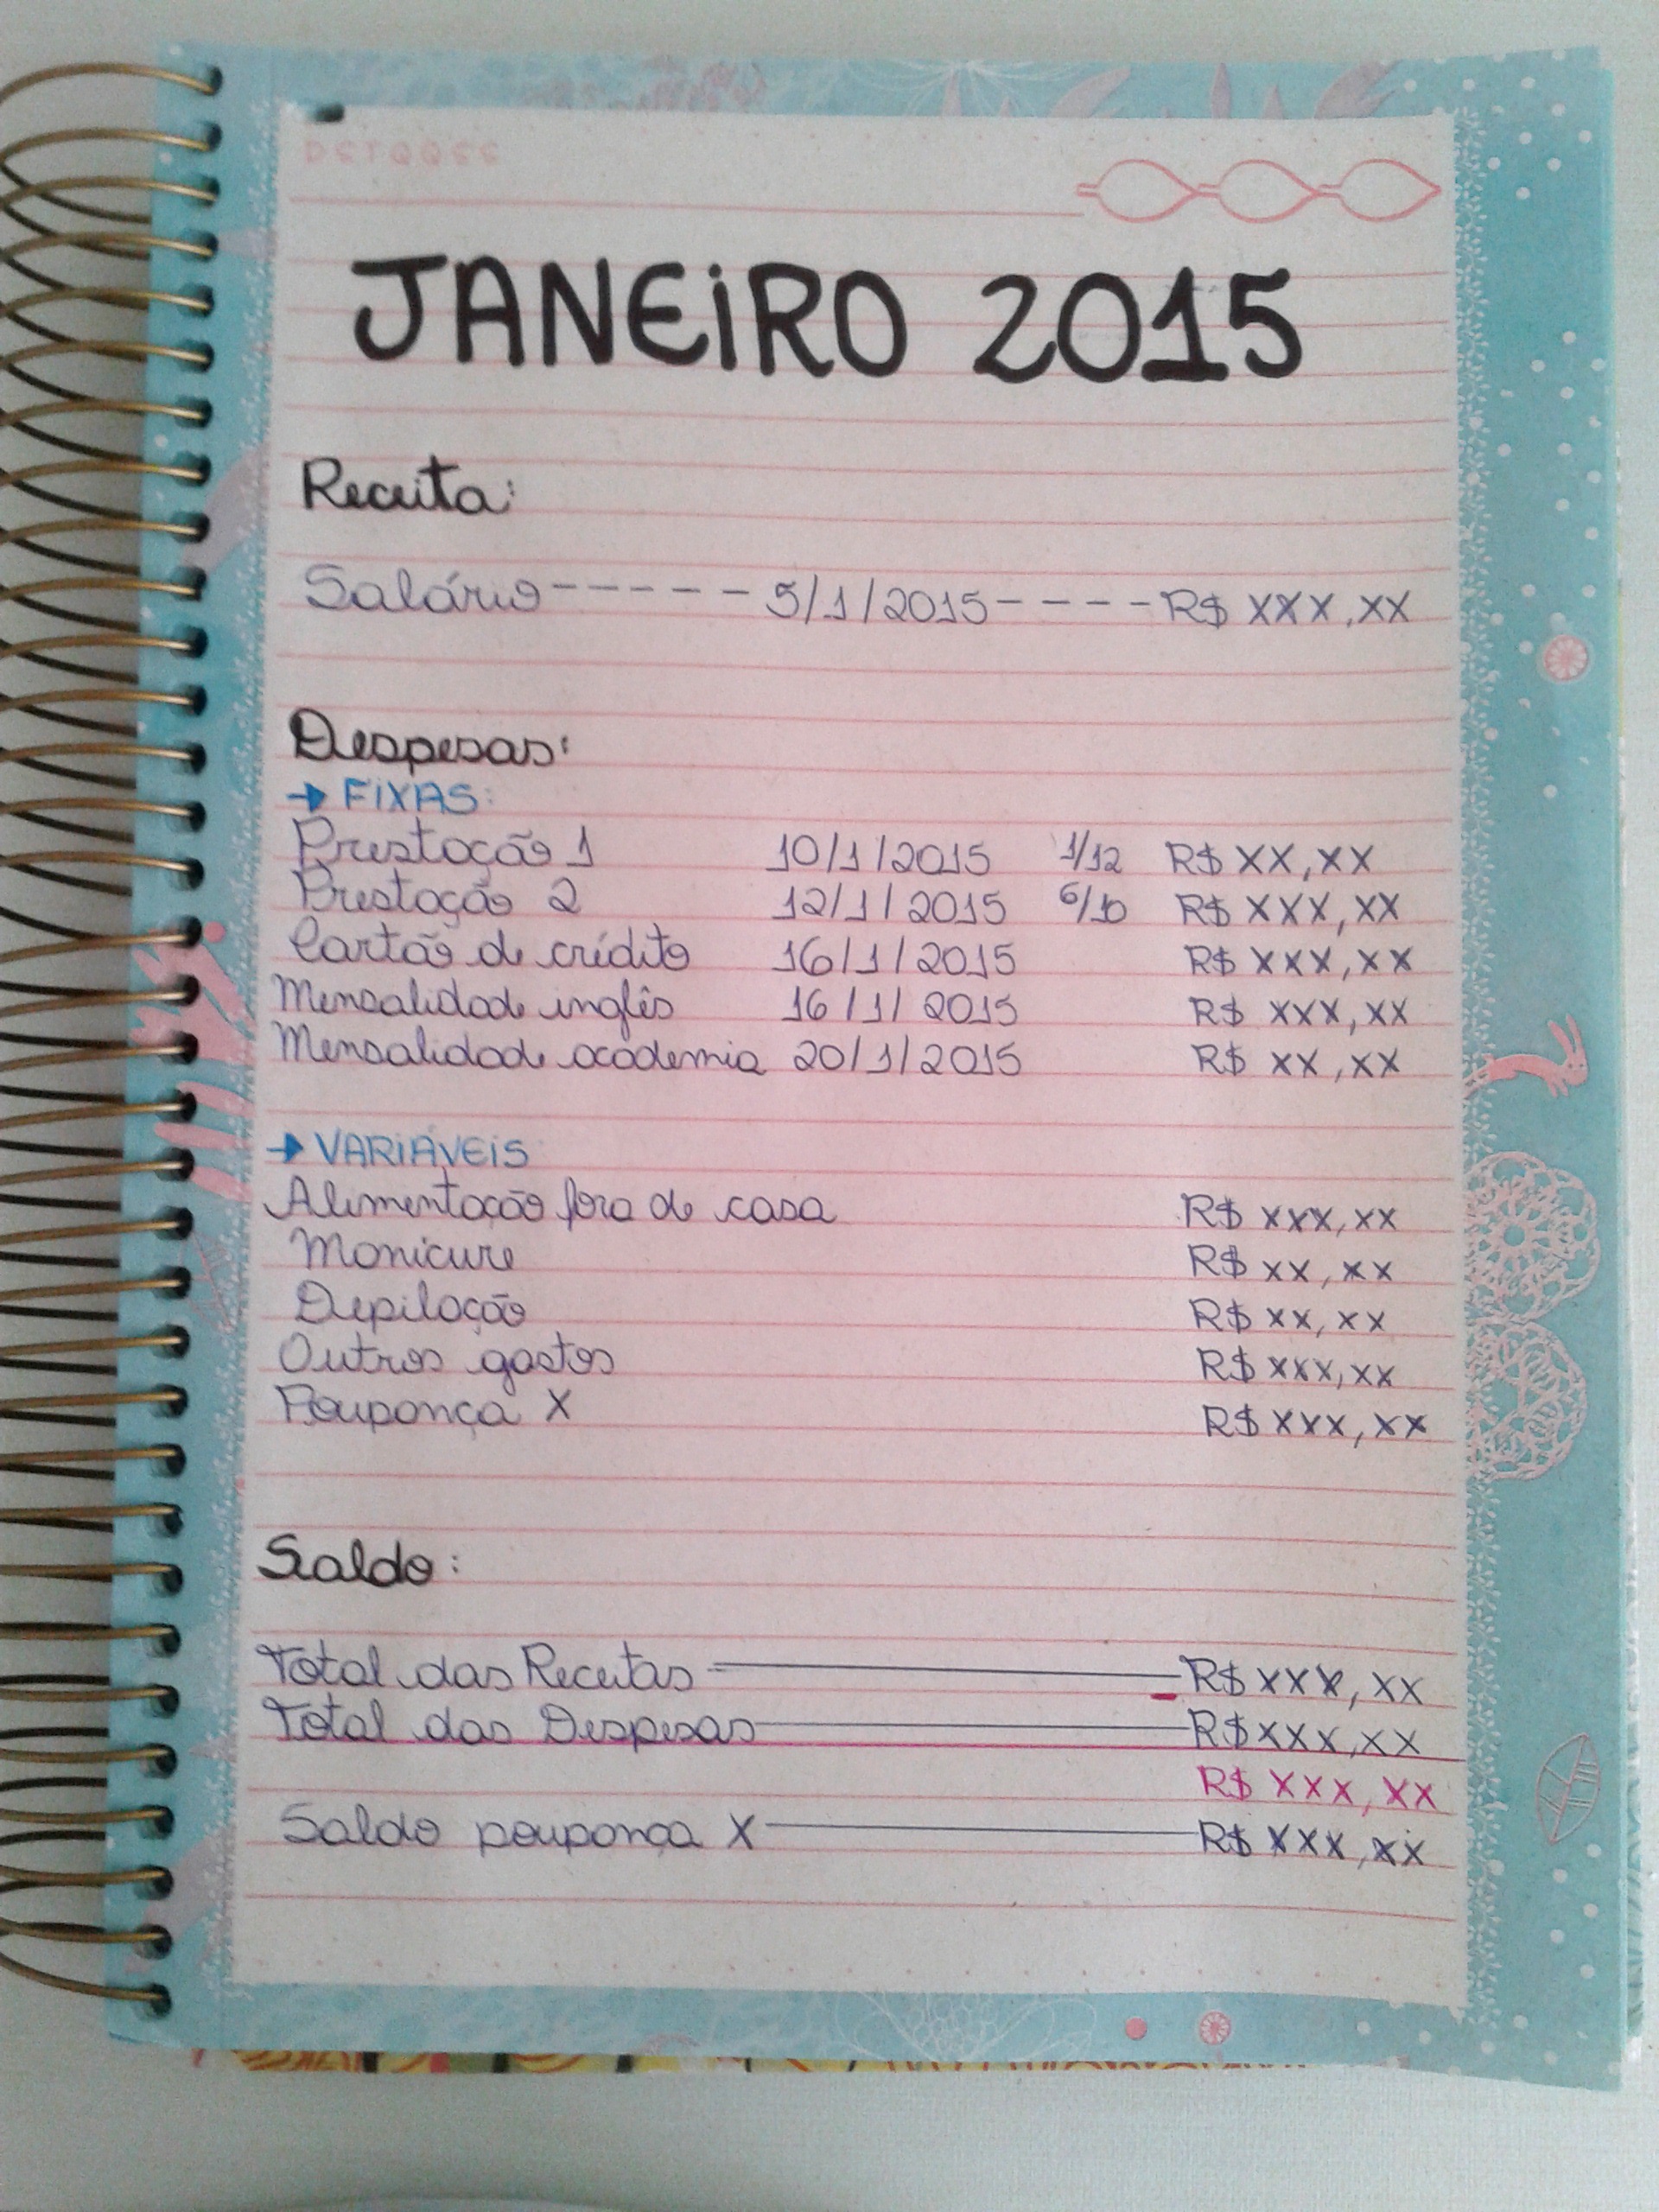 JANEIRO 2015
Receita:
Salário ----- 5/1/2015 ---- R$ XXX,XX
Despesas:
→ FIXAS:
Prestação 1 10/1/2015 1/12 R$ XX,XX
Prestação 2 12/1/2015 6/10 R$ XXX,XX
Cartão de crédito 16/1/2015 R$ XXX,XX
Mensalidade inglês 16/1/2015 R$ XXX,XX
Mensalidade academia 20/1/2015 R$ XX,XX
→ VARIÁVEIS
Alimentação fora de casa R$ XXX,XX
Manicure R$ XX,XX
Depilação R$ XX,XX
Outros gastos R$ XXX,XX
Poupança X R$ XXX,XX
Saldo:
Total das Receitas R$ XXX,XX
Total das Despesas R$ XXX,XX
R$ XXX,XX
Saldo poupança X R$ XXX,XX